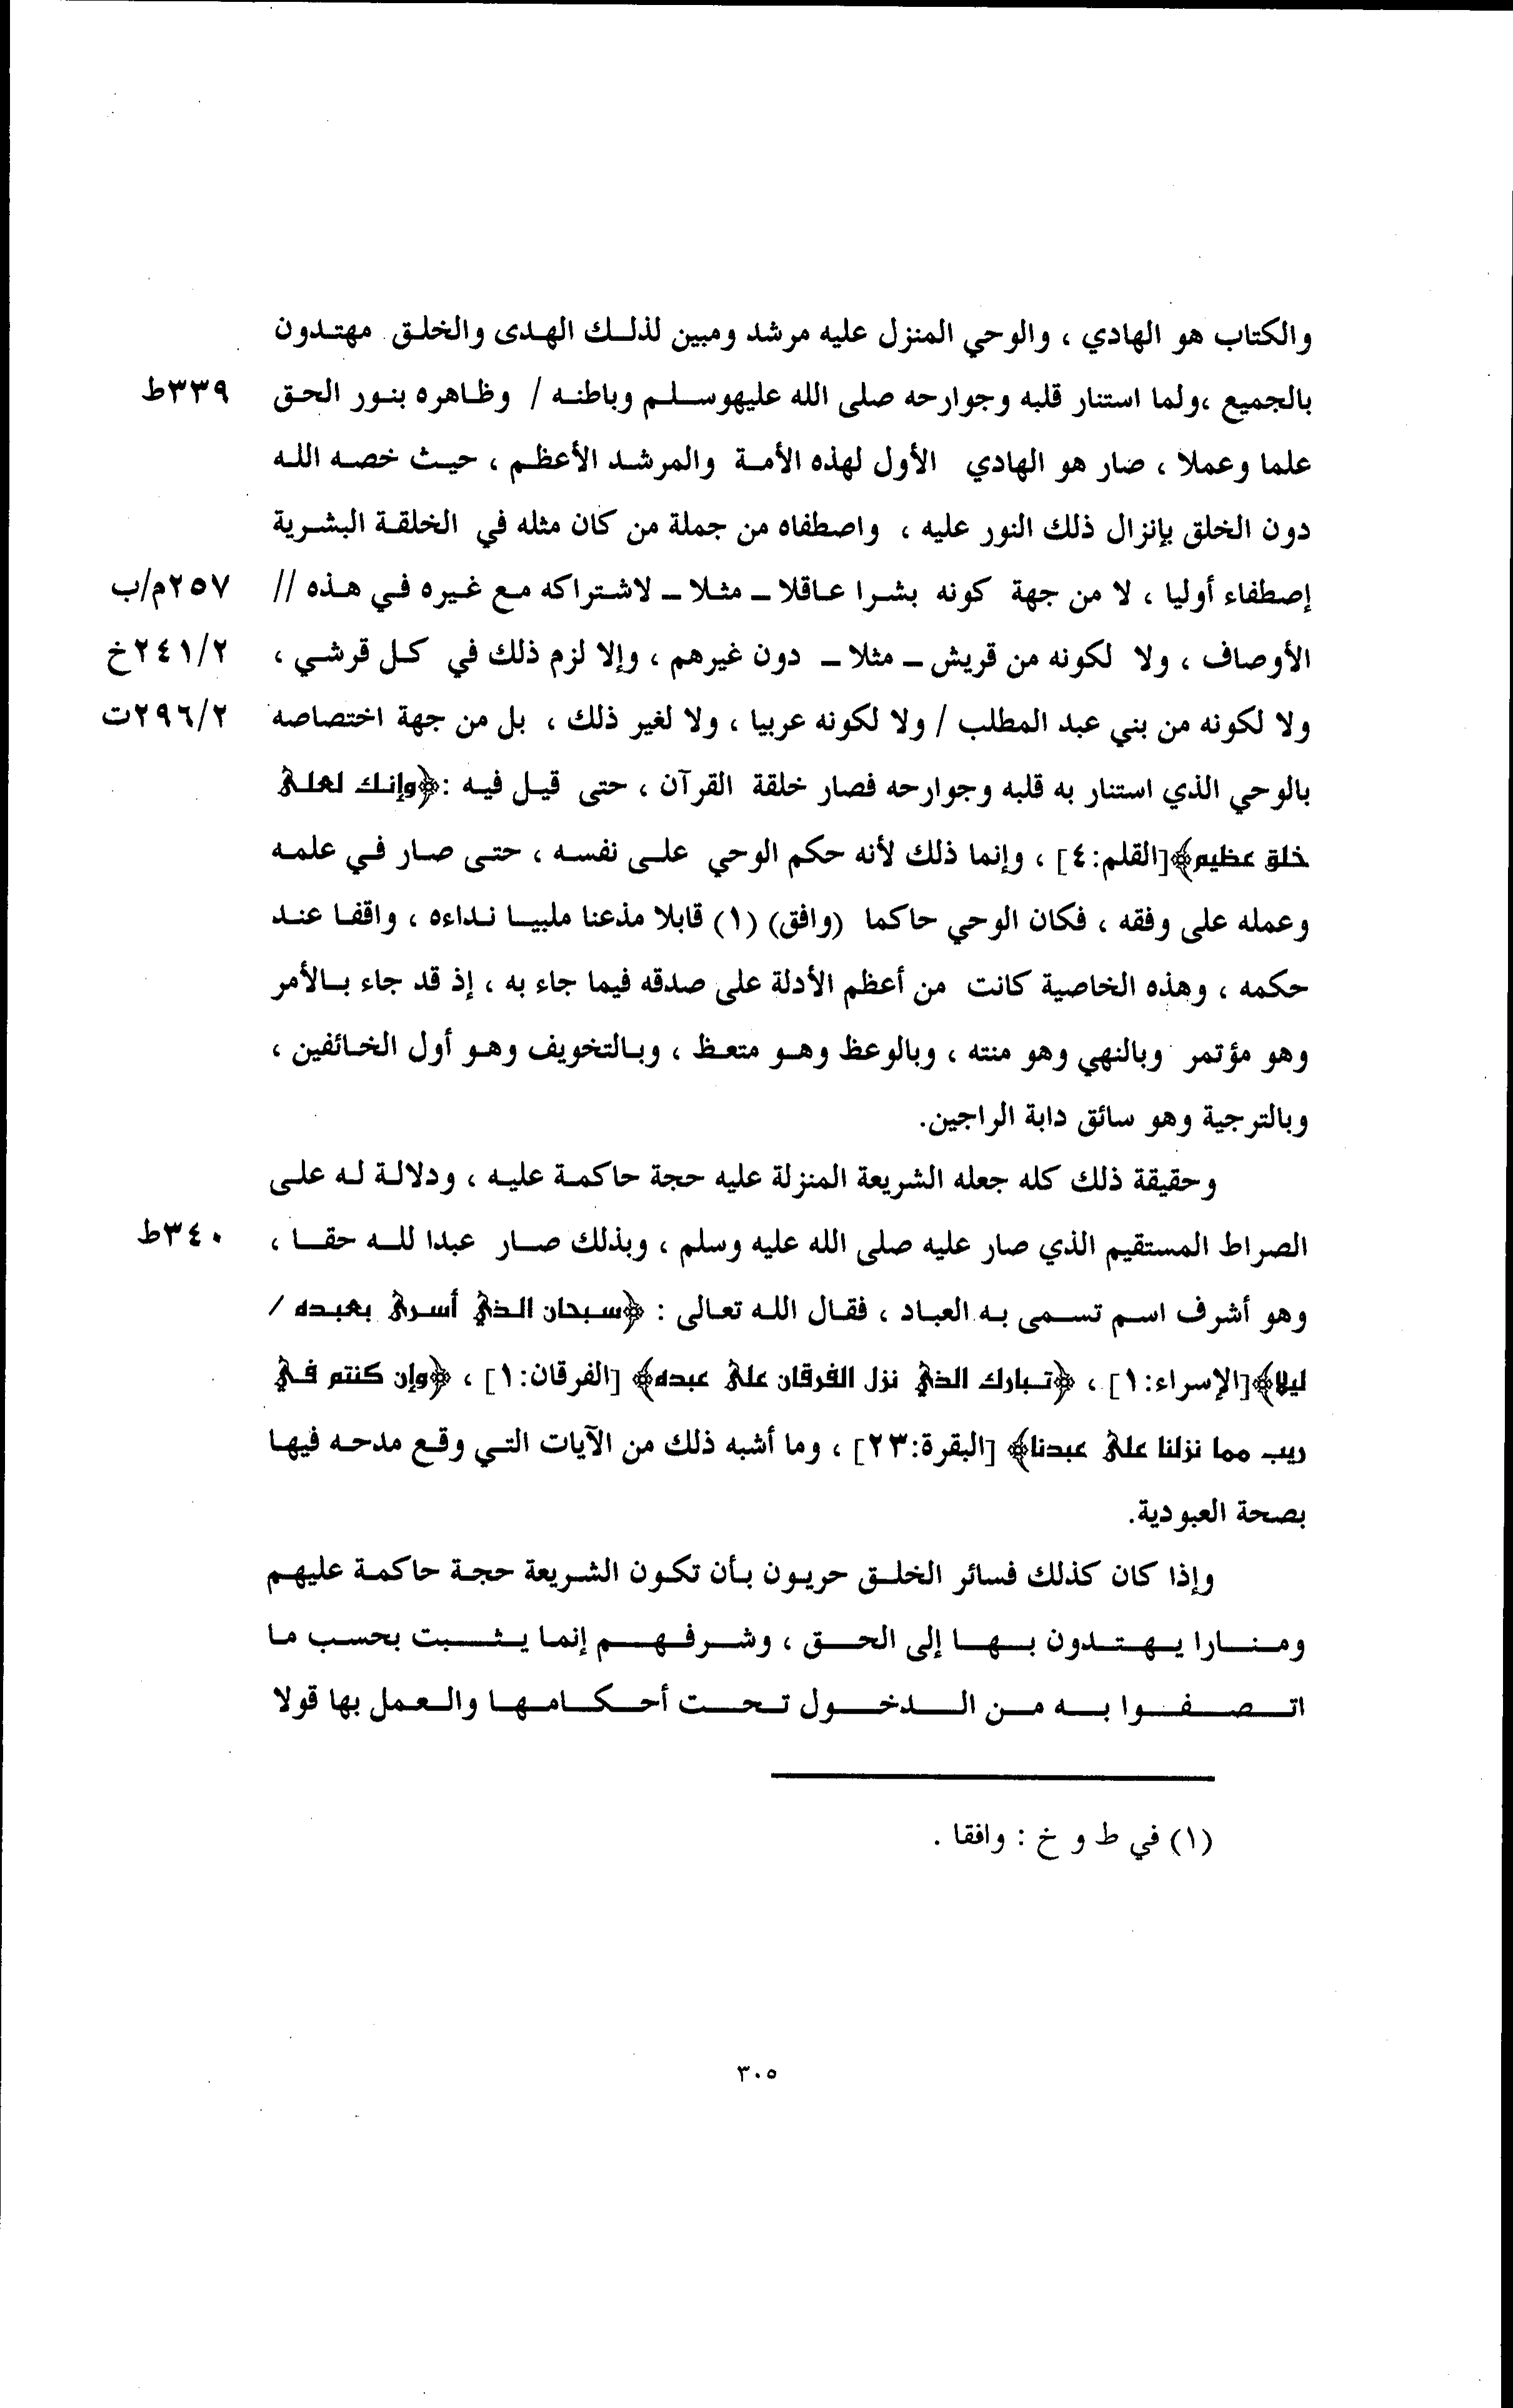 والكتاب هو الهادي ، والوحي المنزل عليه مرشد ومبين لذلك الهدى والخلق مهتدون
بالجميع ،ولما استنار قلبه وجوارحه صلى الله عليهوسلم وباطنه / وظاهره بنور الحق ٣٣٩ط
علما وعملا ، صار هو الهادي الأول لهذه الأمة والمرشد الأعظم ، حيث خصه الله
دون الخلق بإنزال ذلك النور عليه ، واصطفاه من جملة من كان مثله في الخلقة البشرية
إصطفاء أوليا ، لا من جهة كونه بشرا عاقلا – مثلا – لاشتراكه مع غيره في هذه // ٢٥٧م/ب
الأوصاف ، ولا لكونه من قريش – مثلا – دون غيرهم ، وإلا لزم ذلك في كل قرشي ، ٢٤١/٢خ
ولا لكونه من بني عبد المطلب / ولا لكونه عربيا ، ولا لغير ذلك ، بل من جهة اختصاصه ٢٩٦/٢ت
بالوحي الذي استنار به قلبه وجوارحه فصار خلقة القرآن ، حتى قيل فيه :﴿وإنك لعلى
خلق عظيم﴾[القلم:٤] ، وإنما ذلك لأنه حكم الوحي على نفسه ، حتى صار في علمه
وعمله على وفقه ، فكان الوحي حاكما (وافق) (١) قابلا مذعنا ملبيا نداءه ، واقفا عند
حكمه ، وهذه الخاصية كانت من أعظم الأدلة على صدقه فيما جاء به ، إذ قد جاء بالأمر
وهو مؤتمر وبالنهي وهو منته ، وبالوعظ وهو متعظ ، وبالتخويف وهو أول الخائفين ،
وبالترجية وهو سائق دابة الراجين.
وحقيقة ذلك كله جعله الشريعة المنزلة عليه حجة حاكمة عليه ، ودلالة له على
الصراط المستقيم الذي صار عليه صلى الله عليه وسلم ، وبذلك صار عبدا لله حقا ، ٣٤٠ط
وهو أشرف اسم تسمى به العباد ، فقال الله تعالى : ﴿سبحان الذي أسرى بعبده /
ليلا﴾[الإسراء:١] ، ﴿تبارك الذي نزل الفرقان على عبده﴾ [الفرقان:١] ، ﴿وإن كنتم في
ريب مما نزلنا على عبدنا﴾ [البقرة:٢٣] ، وما أشبه ذلك من الآيات التي وقع مدحه فيها
بصحة العبودية.
وإذا كان كذلك فسائر الخلق حريون بأن تكون الشريعة حجة حاكمة عليهم
ومنارا يهتدون بها إلى الحق ، وشرفهم إنما يثبت بحسب ما
اتصفوا به من الدخول تحت أحكامها والعمل بها قولا
(١) في ط و خ : وافقا .
٣٠٥